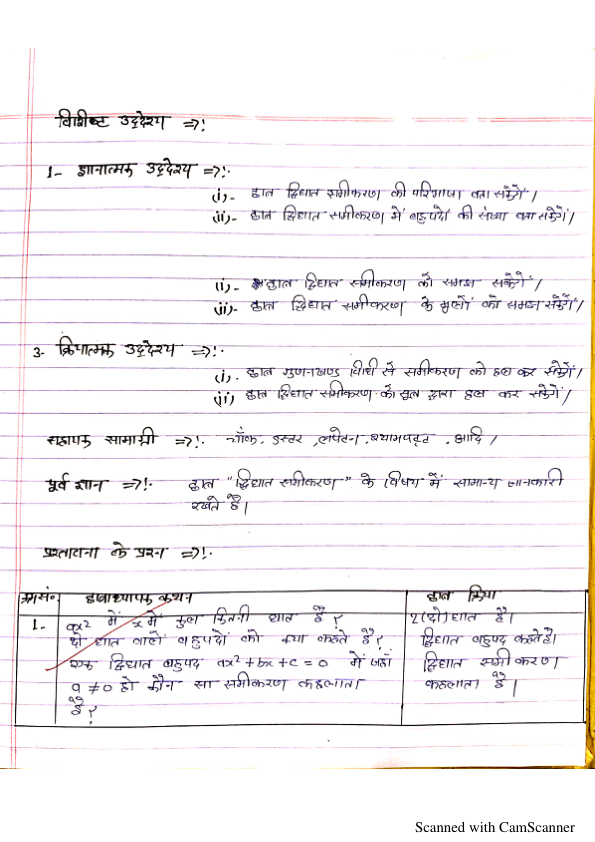 विशिष्ट उद्देश्य =>!
1- ज्ञानात्मक उद्देश्य =>!-
(i)- छात्र द्विघात समीकरण की परिभाषा बता सकेंगे।
(ii)- छात्र द्विघात समीकरण में बहुपदों की संख्या बता सकेंगे।
(i)- छात्र द्विघात समीकरण को समझ सकेंगे।
(ii)- छात्र द्विघात समीकरण के मूलों को समझ सकेंगे।
3- क्रियात्मक उद्देश्य =>!-
(i). छात्र गुणनखण्ड विधी से समीकरण को हल कर सकेंगे।
(ii) छात्र द्विघात समीकरण को सूत्र द्वारा हल कर सकेंगे।
सहायक सामाग्री =>!- चॉक, डस्टर, लपेटन, श्यामपट्ट, आदि।
पूर्व ज्ञान =>!- छात्र "द्विघात समीकरण" के विषय में सामान्य जानकारी
रखते है।
प्रस्तावना के प्रश्न =>!-
क्रमसं० छात्राध्यापक कथन छात्र क्रिया
1- ax² में x में कुल कितनी घात है? 2(दो) घात है।
दो घात वाले बहुपदो को क्या कहते है? द्विघात बहुपद कहते है।
एक द्विघात बहुपद ax²+bx+c=0 में जहाँ द्विघात समीकरण
a≠0 हो कौन सा समीकरण कहलाता कहलाता है।
है?
Scanned with CamScanner